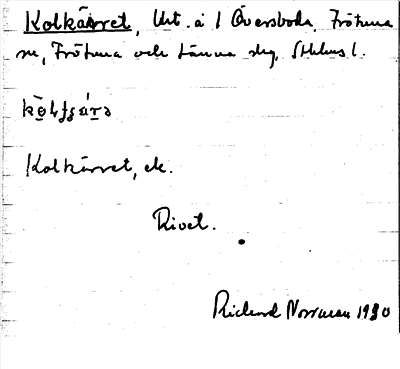 Kolkärret, Utt. å 1 Överboda, Frötuna
sn, Frötuna och Länna skg, Sthlms l.
Kolkärret, ek.
Rivet.
Richard Norrman 1930